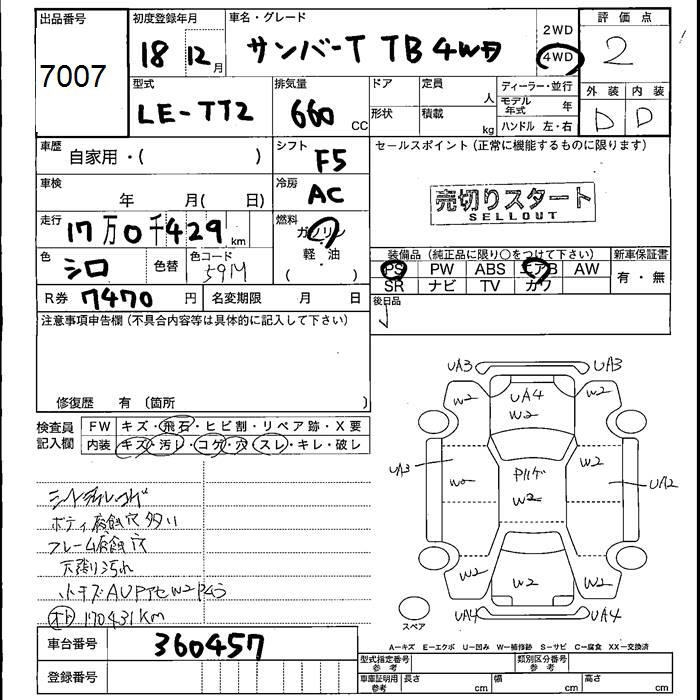 出品番号
7007
初度登録年月
18 12月
車名・グレード
サンバーT TB 4WD
2WD
4WD
評価点
2
型式
LE-TT2
排気量
660 CC
ドア
定員
人
形状
積載
kg
ディーラー・並行
モデル年式 年
ハンドル 左・右
外装 内装
D D
車歴
自家用・( )
シフト
F5
セールスポイント(正常に機能するものに限ります)
車検
年 月( 日)
冷房
AC
売切りスタート
SELLOUT
走行
17万0千429km
燃料
ガソリン
軽・油
( )
色
シロ
色替
色コード
59M
装備品(純正品に限り〇をつけて下さい)
新車保証書
PS PW ABS エアB AW
SR ナビ TV カワ
有・無
R券 7470 円
名変期限 月 日
後日品
注意事項申告欄(不具合内容等は具体的に記入して下さい)
修復歴 有(箇所 )
検査員記入欄
FW キズ・飛石・ヒビ割・リペア跡・X要
内装 キズ・汚レ・コゲ・穴・スレ・キレ・破レ
ボディ腐蝕穴多い
フレーム腐蝕穴
天張り汚れ
170431km
UA3 UA3
W2 UA4 W2
W2
UA3 W2 W2 UA2
W2
W2 W2 W2
UA4 UA4
スペア
A−キズ E−エクボ U−凹み W−補修跡 S−サビ C−腐食 XX−交換済
車台番号
360457
登録番号
型式指定番号 参考
類別区分番号 参考
車庫証明用 参考
長さ cm
幅 cm
高さ cm